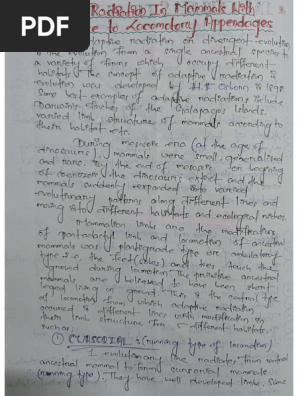 PDF
Radiation In Mammals With
to Locomotory Appendages
adaptive radiation or divergent evolution
is the evolution from a single ancestral species to
a variety of forms which occupy different
habitats. The concept of adaptive radiation in
evolution was developed by H.F. Osborn in 1898
Some best examples of adaptive radiations include
Darwin's finches of the Galapagos Islands,
varied limb structure of mammals according to
their habitat etc.
During mesozoic era (at the age of
dinosaurs), mammals were small, generalised
and rare. By the end of mesozoic or beginning
of the dinosaurs extinct and the
mammals suddenly expanded into varied
evolutionary patterns along different lines and
moving into different habitats and ecological niches.
Mammalian limbs are the modification
of pentadactyl limb and locomotion of ancestral
mammals was plantigrade type or ambulatory
type i.e., the feet (soles) and they touch the
ground during locomotion. The primitive ancestral
mammals are believed to have been short
legged living on ground. This is the central type
of locomotion from which adaptive radiation
occured in different lines with modification in
their limb structure for different habitats.
such as:
① CURSORIAL : (running type of locomotion)
evolutionary line radiates from central
ancestral mammal to form cursorial mammals
(running type). They have well developed limbs. Some